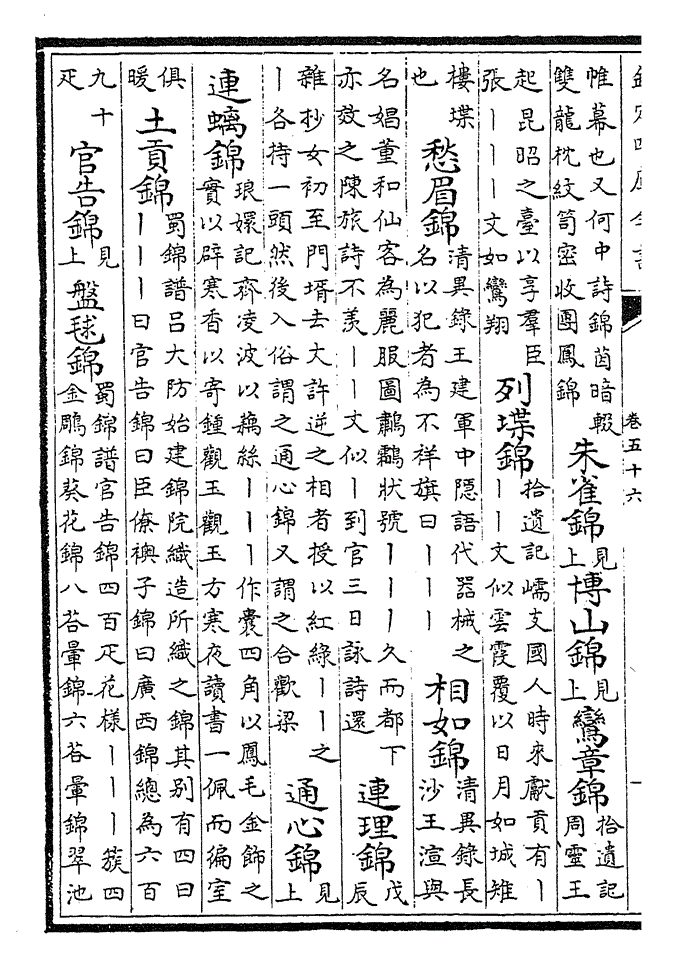 卷五十六
帷幕也又何中詩錦茵暗輟
雙龍枕紋笥密收團鳳錦
朱雀錦
見上
博山錦
見上
鸞章錦
拾遺記
周靈王
起昆昭之臺以享羣臣
張丨丨丨文如鸞翔
列堞錦
拾遺記支國人時來獻貢有丨
丨丨文似雲霞覆以日月如城雉
樓堞
也
愁眉錦
清異錄王建軍中隱語代器械之
名以犯者為不祥旗曰丨丨丨
相如錦
清異錄長
沙王渲與
名娼董和仙客為麗服圖鷫鸘狀號丨丨丨久而都下
亦效之陳旅詩不羨丨丨文似丨到官三日詠詩還
連理錦
戊
辰
雜抄女初至門壻去丈許逆之相者授以紅綠丨丨之
丨各持一頭然後入俗謂之通心錦又謂之合歡梁
通心錦
見上
連螭錦
琅嬛記齊凌波以藕絲丨丨丨作囊四角以鳳毛金飾之
實以辟寒香以寄鍾觀玉觀玉方寒夜讀書一佩而徧室
俱
暖
土貢錦
蜀錦譜呂大防始建錦院織造所織之錦其別有四曰
丨丨丨曰官告錦曰臣僚襖子錦曰廣西錦總為六百
九十
疋
官告錦
見上
盤毬錦
蜀錦譜官告錦四百疋花樣丨丨丨簇四
金鵰錦葵花錦八荅暈錦六荅暈錦翠池